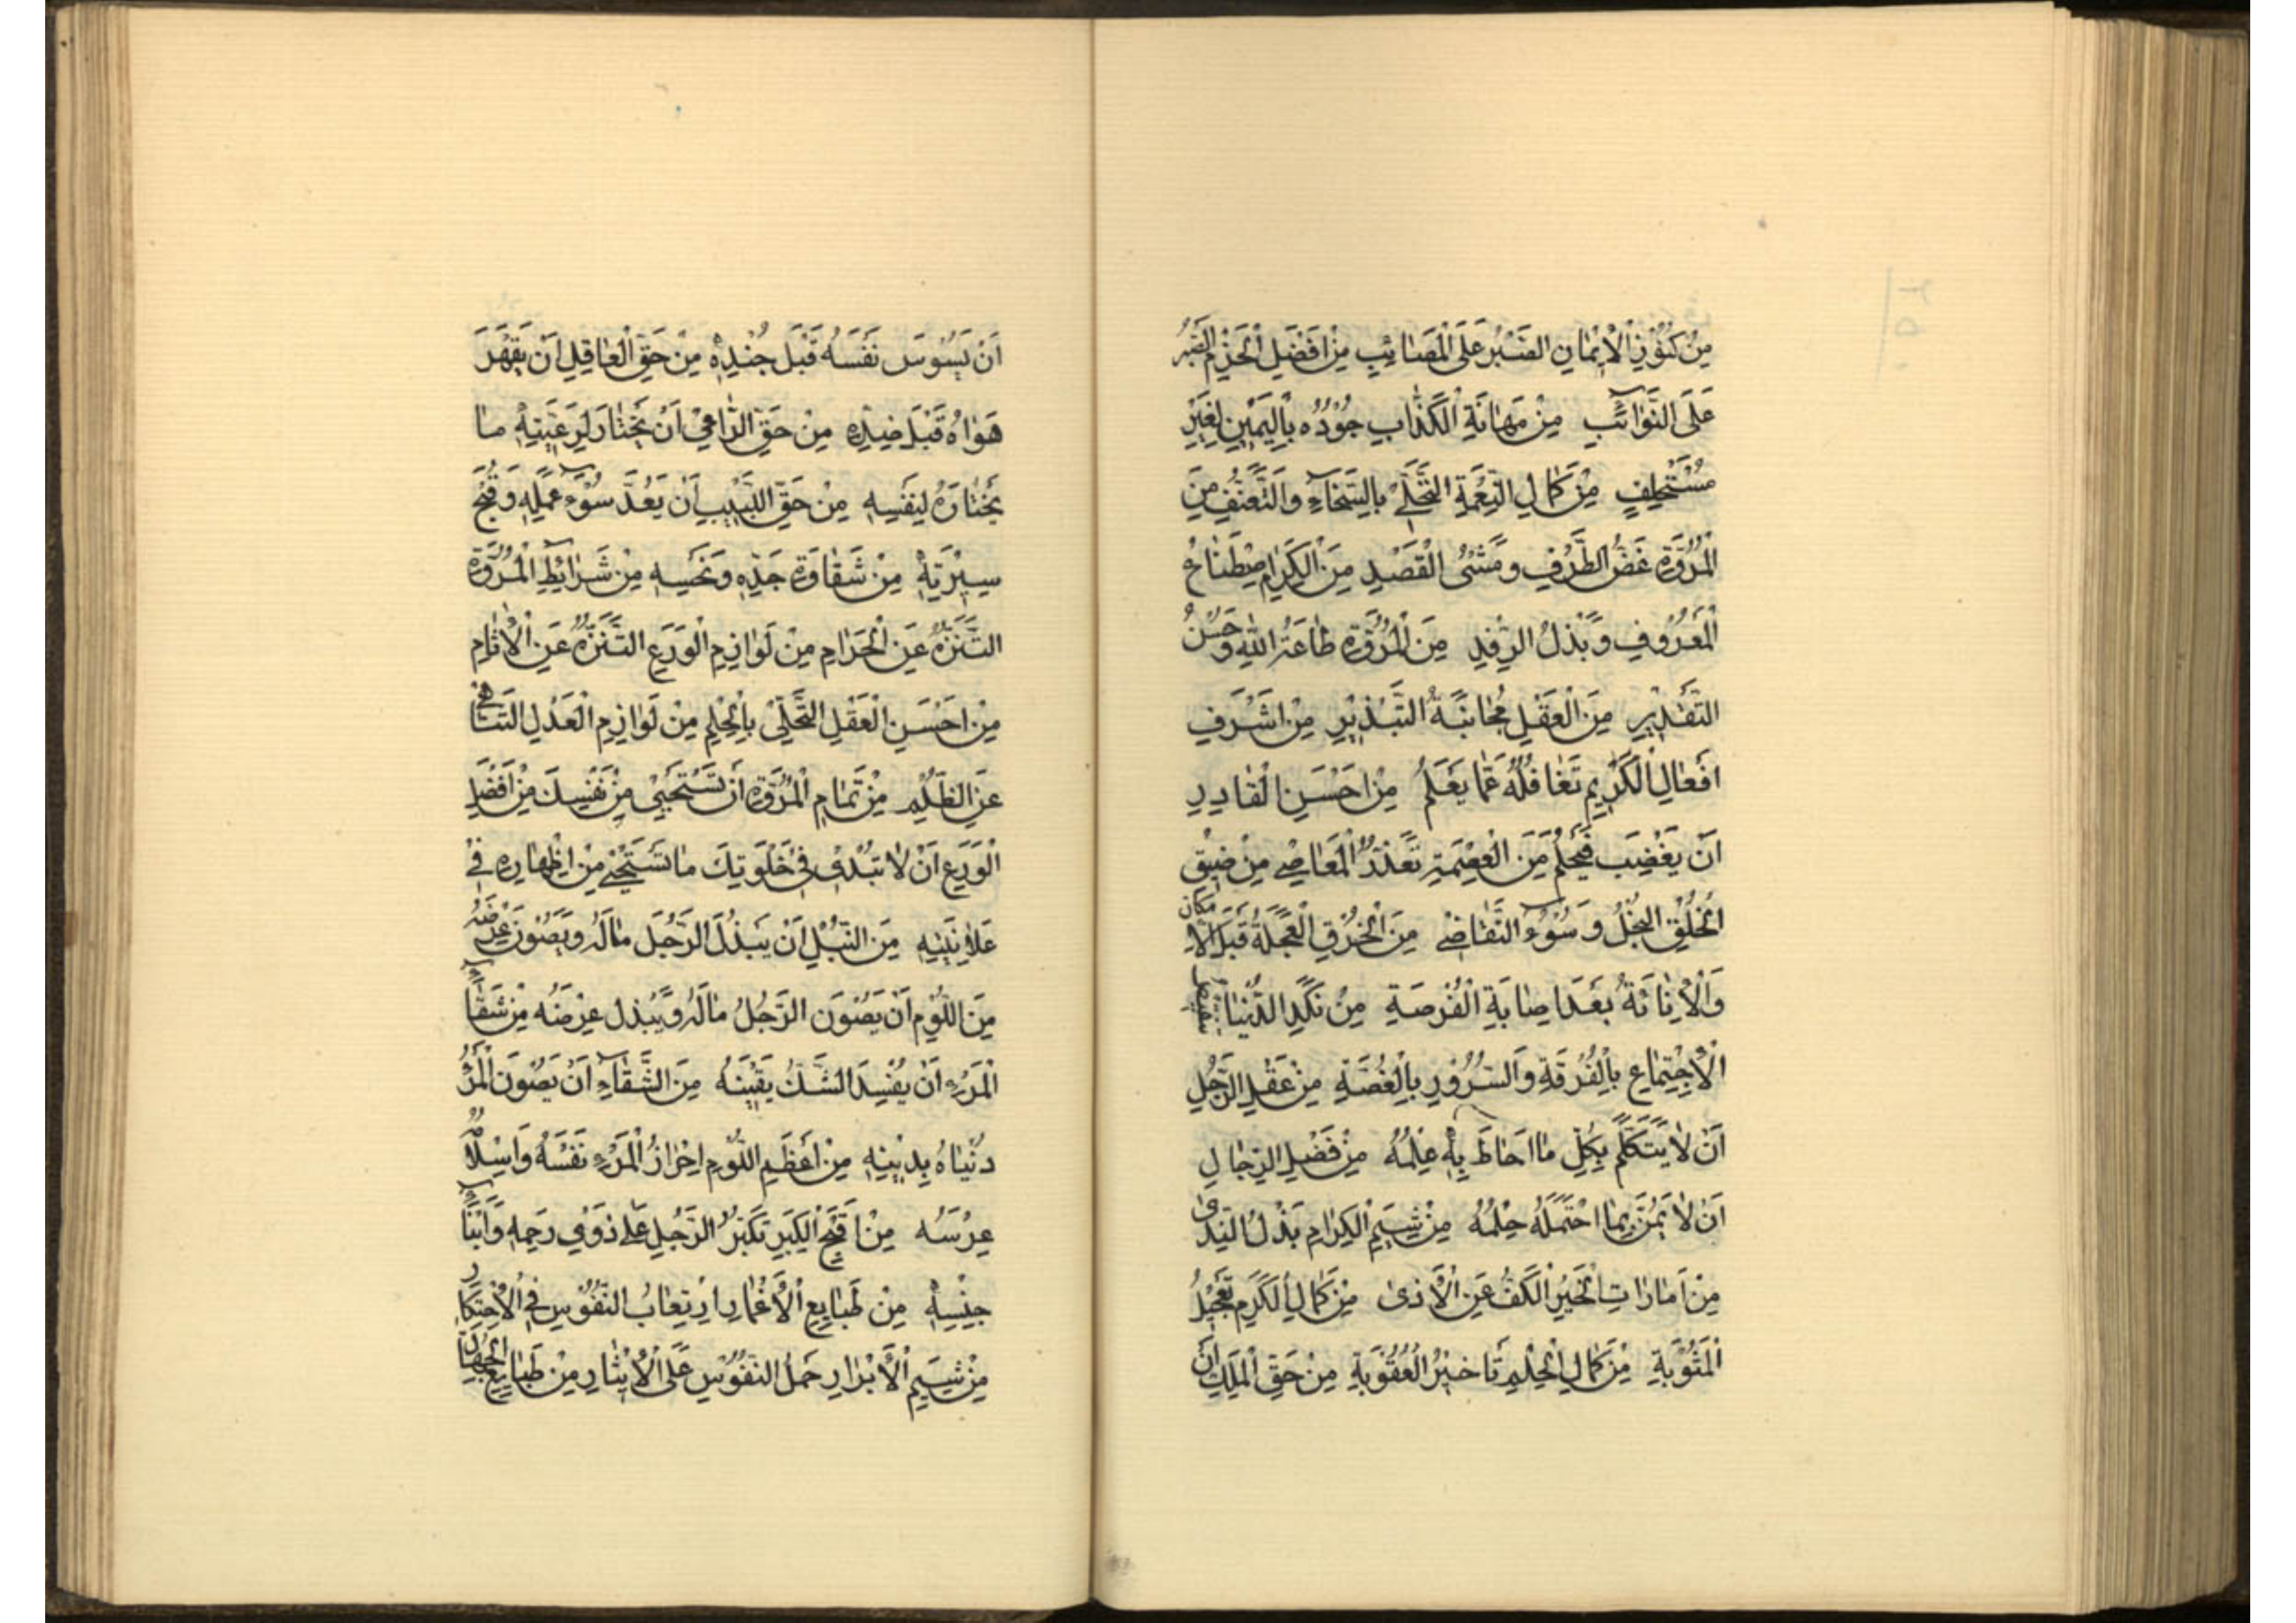 مِنْ كُنُوْزِ الْاِيْمَانِ الصَّبْرُ عَلَى الْمَصَائِبِ مِنْ اَفْضَلِ الْحَزْمِ الصَّبْرُ
عَلَى النَّوَائِبِ مِنْ مَهَانَةِ الْكَذَّابِ جُوْدُهُ بِالْيَمِيْنِ لِغَيْرِ
مُسْتَحْلِفٍ مِنْ كَمَالِ النِّعْمَةِ التَّحَلِّيْ بِالسَّخَاءِ وَالتَّعَفُّفِ مِنَ
الْمُرُوَّةِ غَضُّ الطَّرْفِ وَمَشْيُ الْقَصْدِ مِنَ الْكَرَامِ صْطِنَاعُ
الْمَعْرُوفِ وَبَذْلُ الرِّفْدِ مِنَ الْمُرُوَّةِ طَاعَةُ اللهِ وَحُسْنُ
التَّقْدِيْرِ مِنَ الْعَقْلِ مُجَانَبَةُ التَّبْذِيْرِ مِنْ اَشْرَفِ
اَفْعَالِ الْكَرِيْمِ تَغَافُلُهُ عَمَّا يَعْلَمُ مِنْ اَحْسَنِ الْقَادِرِ
اَنْ يَغْضِبَ فَيَحْلُمَ مِنَ الْعِصْمَةِ تَعَذُّرُ الْمَعَاصِي مِنْ ضِيْقِ
الْخُلُقِ الْبُخْلُ وَسُوْءُ التَّقَاضِي مِنَ الْخُرْقِ الْعَجَلَةُ قَبْلَ الْاِمْكَانِ
وَالْاِنَائَةُ بَعْدَ اِصَابَةِ الْفُرْصَةِ مِنْ نَكَدِ الدُّنْيَا تَنْغِيْصُ
الْاِجْتِمَاعِ بِالْفُرْقَةِ وَالسُّرُوْرِ بِالْغُصَّةِ مِنْ عَقْلِ الرَّجُلِ
اَنْ لَا يَتَكَلَّمَ بِكُلِّ مَا اَحَاطَ بِهِ عِلْمُهُ مِنْ فَضْلِ الرِّجَالِ
اَنْ لَا يَمُنَّ بِمَا احْتَمَلَهُ حِلْمُهُ مِنْ شِيَمِ الْكِرَامِ بَذْلُ النَّدىٰ
مِنْ اَمَارَاتِ الْخَيْرِ الْكَفُّ عَنِ الْاَذىٰ مِنْ كَمَالِ الْكَرَمِ تَعْجِيْلُ
الْمَثُوْبَةِ مِنْ كَمَالِ الْحِلْمِ تَاخِيْرُ الْعُقُوْبَةِ مِنْ حَقِّ الْمَلِكِ اَنْ
اَنْ يَسُوْسَ نَفْسَهُ قَبْلَ جُنْدِهِ مِنْ حَقِّ الْعَاقِلِ اَنْ يَقْهَرَ
هَوَاهُ قَبْلَ ضِدِّهِ مِنْ حَقِّ الرَّاعِيْ اَنْ يَخْتَارَ لِرَعِيَّتِهِ مَا
يَخْتَارُهُ لِنَفْسِهِ مِنْ حَقِّ اللَّبِيْبِ اَنْ يَعُدَّ سُوْءَ عَمَلِهِ وَقُبْحَ
سِيْرَتِهِ مِنْ شَقَاوَةِ جَدِّهِ وَنَحْسِهِ مِنْ شَرَايِطِ الْمُرُوَّةِ
التَّنَزُّهُ عَنِ الْحَرَامِ مِنْ لَوَازِمِ الْوَرَعِ التَّنَزُّهُ عَنِ الْاٰثَامِ
مِنْ اَحْسَنِ الْعَقْلِ التَّحَلِّيْ بِالْحِلْمِ مِنْ لَوَازِمِ الْعَدْلِ التَّنَاهِيْ
عَنِ الظُّلْمِ مِنْ تَمَامِ الْمُرُوَّةِ اَنْ تَسْتَحْيِيَ مِنْ نَفْسِكَ مِنْ اَفْضَلِ
الْوَرَعِ اَنْ لَا تُبْدِيَ فِيْ خَلْوَتِكَ مَا تَسْتَحْيِيْ مِنْ اِظْهَارِهِ فِيْ
عَلَانِيَتِهِ مِنَ النُّبْلِ اَنْ يَبْذُلَ الرَّجُلَ مَالَهُ وَيَصُوْنَ عِرْضَهُ
مِنَ اللُّؤْمِ اَنْ يَصُوْنَ الرَّجُلُ مَالَهُ وَيَبْذُلَ عِرْضَهُ مِنْ شَقَاءِ
الْمَرْءِ اَنْ يُفْسِدَ الشَّكُّ يَقِيْنَهُ مِنَ الشَّقَاءِ اَنْ يَصُوْنَ الْمَرْءُ
دُنْيَاهُ بِدِيْنِهِ مِنْ اَعْظَمِ اللُّؤْمِ اِحْرَازُ الْمَرْءِ نَفْسَهُ وَاِسْلَامُهُ
عِرْسَهُ مِنْ اَقْبَحِ الْكِبْرِ تَكَبُّرُ الرَّجُلِ عَلَى ذَوِي رَحِمِهِ وَاَبْنَاءِ
جِنْسِهِ مِنْ طَبَايِعِ الْاَغْمَارِ اِتْعَابُ النُّفُوْسِ فِي الْاِحْتِكَارِ
مِنْ شِيَمِ الْاَبْرَارِ حَمْلُ النُّفُوْسِ عَلَى الْاِيْثَارِ مِنْ طَبَايِعِ الْجُهَّالِ